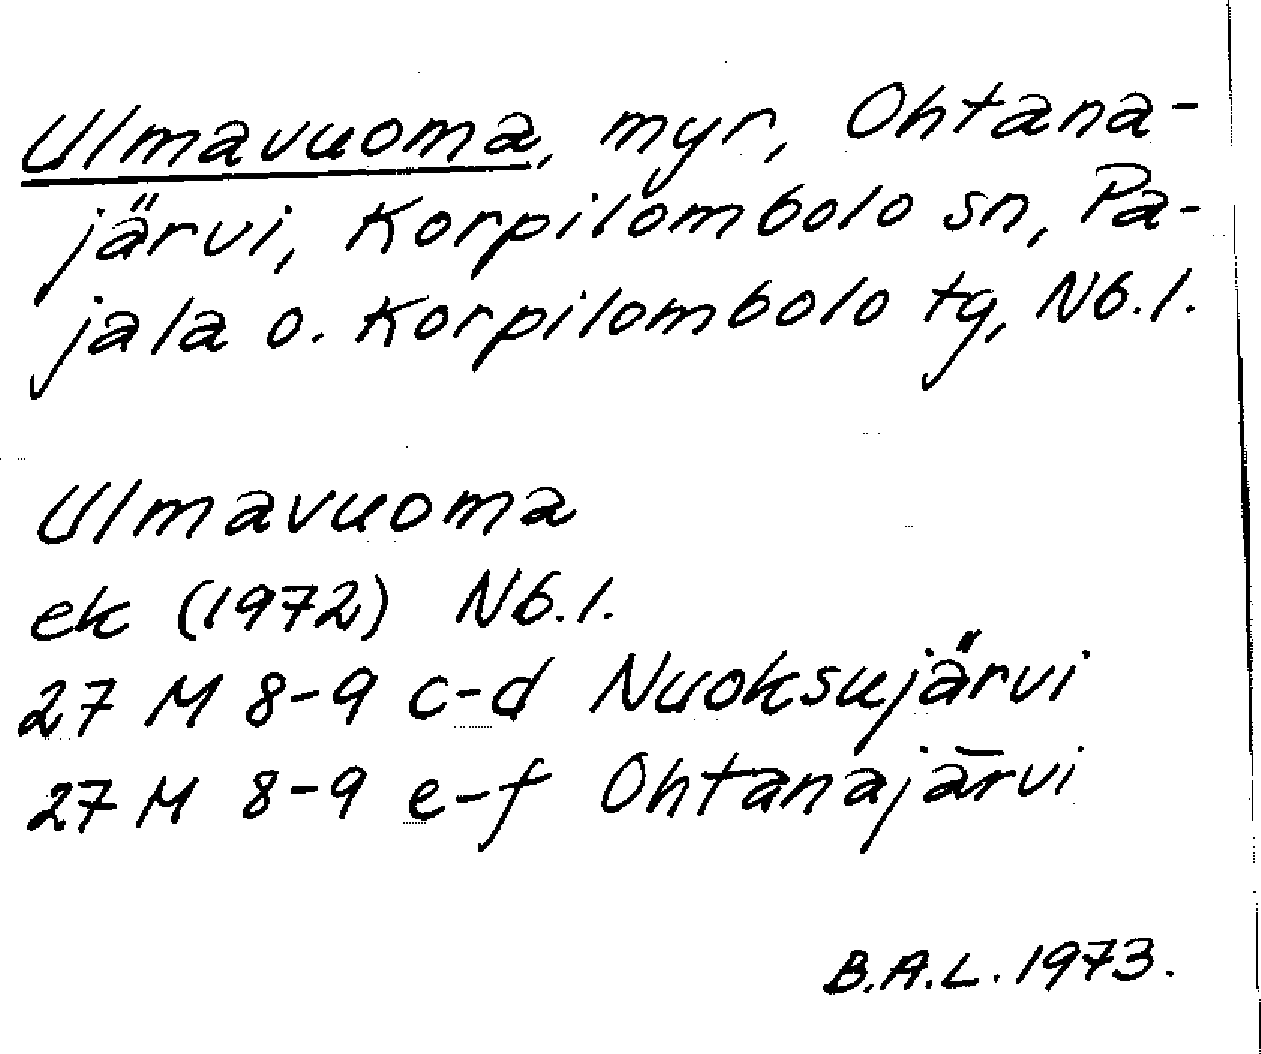 Ulmavuoma, myr, Ohtana-
järvi, Korpilombolo sn, Pa-
jala o. Korpilombolo tg, Nb.l.
Ulmavuoma
ek (1972) Nb.l.
27 M 8-9 c-d Nuoksujärvi
27 M 8-9 e-f Ohtanajärvi
B.A.L. 1973.